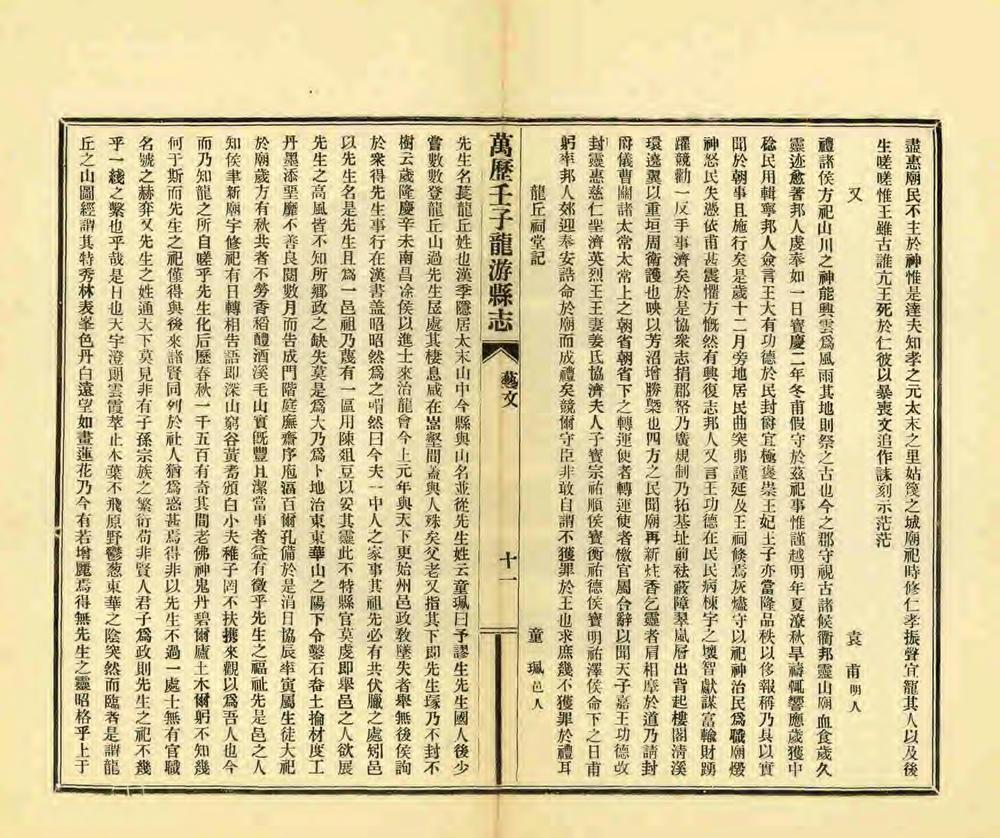 盡惠廟民不主於神惟是達夫知孝之元太末之里姑篾之城廟祀時修仁孝振聲宜寵其人以及後
生嗟嗟惟王雖古誰亢王死於仁彼以暴喪文追作誄刻示茫茫
又 袁甫明人
禮諸侯方祀山川之神能興雲爲風雨其地則祭之古也今之郡守視古諸侯衢邦靈山廟血食歲久
靈迹愈著邦人虔奉如一日寶慶二年冬甫假守於茲祀事惟謹越明年夏潦秋旱禱輒響應歲獲中
稔民用輯寧邦人僉言王大有功德於民封爵宜極褒崇王妃王子亦當隆品秩以侈報稱乃具以實
聞於朝事且施行矣是歲十二月旁地居民曲突弗謹延及王祠倐焉灰燼守以祀神治民爲職廟燬
神怒民失憑依甫甚震懼方慨然有興復志邦人又言王功德在民民病棟宇之壞智獻謀富輸財踴
躍競勸一反手事濟矣於是協衆志捐郡帑乃廣規制乃拓基址前祛蔽障翠嵐層出背起樓閣淸溪
環遶翼以重垣周衛護也映以芳沼增勝槩也四方之民聞廟再新炷香乞靈者肩相摩於道乃請封
爵儀曹關諸太常太常上之朝省朝省下之轉運使者轉運使者檄官屬合辭以聞天子嘉王功德改
封靈惠慈仁聖濟英烈王王妻姜氏協濟夫人子寶宗祐順侯寶衡祐德侯寶明祐澤侯命下之日甫
躬率邦人郊迎奉安誥命於廟而成禮矣兢爾守臣非敢自謂不獲罪於王也求庶幾不獲罪於禮耳
龍丘祠堂記 童珮邑人
萬歷壬子龍游縣志 藝文 十一
先生名萇龍丘姓也漢季隱居太末山中今縣與山名並從先生姓云童珮曰予謬生先生國人後少
嘗數數登龍丘山過先生屋處其棲息咸在嵓壑間蓋與人殊矣父老又指其下即先生塚乃不封不
樹云歲隆慶辛未南昌凃侯以進士來治龍會今上元年與天下更始州邑政敎墜失者舉無後侯詢
於衆得先生事行在漢書蓋昭昭然爲之喟然曰今夫一中人之家事其祖先必有共伏臘之處矧邑
以先生名是先生且爲一邑祖乃蔑有一區用陳俎豆以妥其靈此不特縣官莫虔即舉邑之人欲展
先生之高風皆不知所鄕政之缺失莫是爲大乃爲卜地治東東華山之陽下令鑿石畚土掄材度工
丹墨添堊靡不善良閱數月而告成門階庭廡齋序庖湢百爾孔備於是涓日協辰率寅屬生徒大祀
於廟歲方有秋共者不勞香稻醴酒溪毛山實旣豐且潔當事者益有徵乎先生之福祉先是邑之人
知侯聿新廟宇修祀有日轉相告語即深山窮谷黃耇頒白小夫稚子罔不扶攜來觀以爲吾人也今
而乃知龍之所自嗟乎先生化后歷春秋一千五百有奇其間老佛神鬼丹碧爾廬土木爾躬不知幾
何于斯而先生之祀僅得與後來諸賢同列於社人猶爲惑甚焉得非以先生不過一處士無有官職
名號之赫弈又先生之姓通天下莫見非有子孫宗族之繁衍苟非賢人君子爲政則先生之祀不幾
乎一綫之繫也乎哉是日也天宇澄朗雲霞萃止木葉不飛原野鬱葱東華之陰突然而臨者是謂龍
丘之山圖經謂其特秀林表峯色丹白遠望如畫蓮花乃今有若增麗焉得無先生之靈昭格乎上于